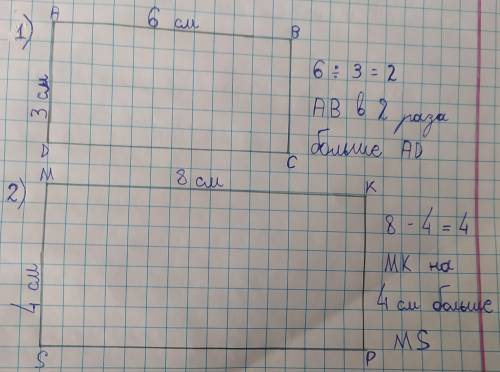 1)
A
6 см
B
3 см
6 ÷ 3 = 2
AB в 2 раза
больше AD
D
C
2)
M
8 см
K
4 см
8 - 4 = 4
MK на
4 см больше
MS
S
P